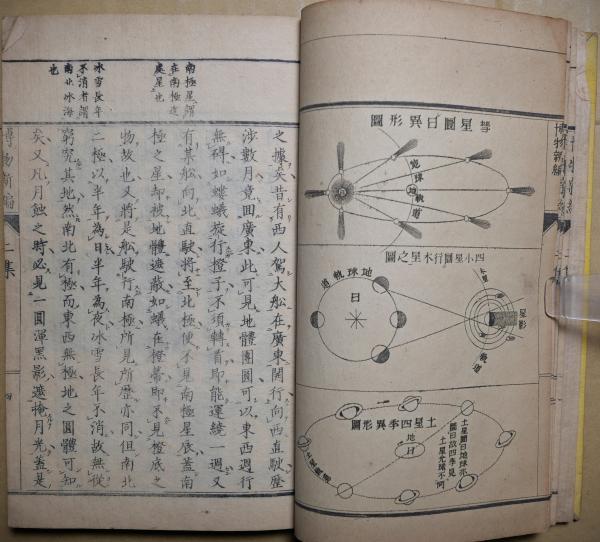 彗星圜日異形圖
地球軌道
地
四小星圜行木星之圖
地球軌道
日
木星
星影
軌道
土星四季異形圖
地
日
土星圜日地球亦
圜日故四季見
土星光球不同
博物新編
南極星謂
在南極邊
處星也
冰雪長年
不消者謂
南北冰海
也
之據矣昔有西人駕大船在廣東開行向西直駛歷
涉數月竟囬廣東此可見地體團圓可以東西週行
無碍如螻蟻旋行橙子不須轉首即能運繞一週又
有某船向北直駛將至北極便不見南極星辰蓋南
極之星却被地體遮蔽如蟻在橙蒂即不見橙底之
物故也又將是船駛行南極所見所歷亦同但南北
二極以半年為日半年為夜冰雪長年不消故無從
窮究其地然南北有極而東西無極地之圓體可知
矣又凡月蝕之時必見一圓渾黑影遮掩月光蓋是
博物新編
二集
四